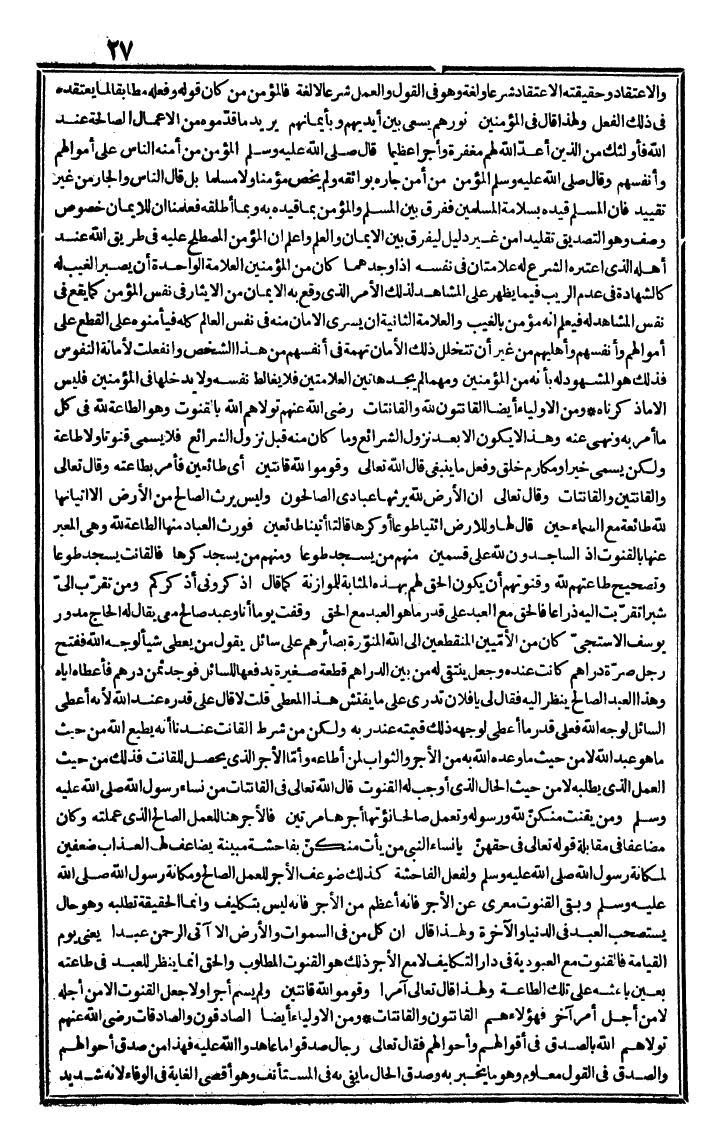 ٢٧
والاعتقاد وحقيقته الاعتقاد شرعا ولغة وهو فى القول والعمل شرعا لالغة فالمؤمن من كان قوله وفعله مطابقا لما يعتقده
فى ذلك الفعل ولهذا قال فى المؤمنين نورهم يسعى بين أيديهم وبأيمانهم يريد ما قدّموه من الاعمال الصالحة عند
الله فأولئك من الذين أعدّ الله لهم مغفرة وأجرا عظيما قال صلى الله عليه وسلم المؤمن من أمنه الناس على أموالهم
وأنفسهم وقال صلى الله عليه وسلم المؤمن من أمن جاره بوائقه ولم يخص مؤمنا ولا مسلما بل قال الناس والجار من غير
تقييد فان المسلم قيده بسلامة المسلمين ففرق بين المسلم والمؤمن بما قيده به وبما أطلقه فعلمنا ان للايمان خصوص
وصف وهو التصديق تقليدا من غير دليل ليفرق بين الايمان والعلم واعلم ان المؤمن المصطلح عليه فى طريق الله عند
أهله الذى اعتبره الشرع له علامتان فى نفسه اذا وجدهما كان من المؤمنين العلامة الواحدة أن يصير الغيب له
كالشهادة فى عدم الريب فيما يظهر على المشاهد لذلك الأمر الذى وقع به الايمان من الايثار فى نفس المؤمن كما يقع فى
نفس المشاهد له فيعلم انه مؤمن بالغيب والعلامة الثانية ان يسرى الامان منه فى نفس العالم كله فيأمنوه على القطع على
أموالهم وأنفسهم وأهليهم من غير أن تتخلل ذلك الأمان تهمة فى أنفسهم من هذا الشخص وانفعلت لأمانة النفوس
فذلك هو المشهود له بأنه من المؤمنين ومهما لم يجد هاتين العلامتين فلا يغالط نفسه ولا يدخلها فى المؤمنين فليس
الا ماذكرناه * ومن الاولياء أيضا القانتون لله والقانتات رضى الله عنهم تولاهم الله بالقنوت وهو الطاعة لله فى كل
ما أمر به ونهى عنه وهذا لا يكون الا بعد نزول الشرائع وما كان منه قبل نزول الشرائع فلا يسمى قنوتا ولا طاعة
ولكن يسمى خيرا ومكارم خلق وفعل ما ينبغى قال الله تعالى وقوموا لله قانتين أى طائعين فأمر بطاعته وقال تعالى
والقانتين والقانتات وقال تعالى ان الأرض لله يرثها عبادى الصالحون وليس يرث الصالح من الأرض الا اتيانها
لله طائعة مع السماء حين قال لها وللارض ائتيا طوعا أو كرها قالتا أتينا طائعين فورث العباد منها الطاعة لله وهى المعبر
عنها بالقنوت اذ الساجدون لله على قسمين منهم من يسجد طوعا ومنهم من يسجد كرها فالقانت يسجد طوعا
وتصحيح طاعتهم لله وقنوتهم أن يكون الحق لهم بهذه المثابة للموازنة كما قال اذكرونى أذكركم ومن تقرّب الىّ
شبرا تقرّبت اليه ذراعا فالحق مع العبد على قدر ما هو العبد مع الحق وقفت يوما أنا وعبد صالح معى يقال له الحاج مدور
يوسف الاستجىّ كان من الأمّيين المنقطعين الى الله المنوّرة بصائرهم على سائل يقول من يعطى شيأ لوجه الله ففتح
رجل صرّة دراهم كانت عنده وجعل ينتقى له من بين الدراهم قطعة صغيرة يدفعها للسائل فوجد ثمن درهم فأعطاه اياه
وهذا العبد الصالح ينظر اليه فقال لى يا فلان تدرى على ما يفتش هذا المعطى قلت لا قال على قدره عند الله لأنه أعطى
السائل لوجه الله فعلى قدر ما أعطى لوجهه ذلك قيمته عند ربه ولكن من شرط القانت عندنا أنه يطيع الله من حيث
ما هو عبد الله لا من حيث ما وعده الله به من الأجر والثواب لمن أطاعه وأمّا الأجر الذى يحصل للقانت فذلك من حيث
العمل الذى يطلبه لا من حيث الحال الذى أوجب له القنوت قال الله تعالى فى القانتات من نساء رسول الله صلى الله عليه
وسلم ومن يقنت منكنّ لله ورسوله وتعمل صالحا نؤتها أجرها مرتين فالأجر هنا للعمل الصالح الذى عملته وكان
مضاعفا فى مقابلة قوله تعالى فى حقهنّ يانساء النبى من يأت منكنّ بفاحشة مبينة يضاعف لها العذاب ضعفين
لمكانة رسول الله صلى الله عليه وسلم ولفعل الفاحشة كذلك ضوعف الأجر للعمل الصالح ومكانة رسول الله صلى الله
عليه وسلم وبقى القنوت معرى عن الأجر فانه أعظم من الأجر فانه ليس بتكليف وانما الحقيقة تطلبه وهو حال
يستصحب العبد فى الدنيا والآخرة ولهذا قال ان كل من فى السموات والأرض الا آتى الرحمن عبدا يعنى يوم
القيامة فالقنوت مع العبودية فى دار التكليف لا مع الأجر ذلك هو القنوت المطلوب والحق انما ينظر للعبد فى طاعته
بعين باعثه على تلك الطاعة ولهذا قال تعالى آمرا وقوموا لله قانتين ولم يسم أجرا ولا جعل القنوت الا من أجله
لا من أجل أمر آخر فهؤلاء هم القانتون والقانتات * ومن الاولياء أيضا الصادقون والصادقات رضى الله عنهم
تولاهم الله بالصدق فى أقوالهم وأحوالهم فقال تعالى رجال صدقوا ما عاهدوا الله عليه فهذا من صدق أحوالهم
والصدق فى القول معلوم وهو ما يخبر به وصدق الحال ما يفى به فى المستأنف وهو أقصى الغاية فى الوفاء لانه شديد